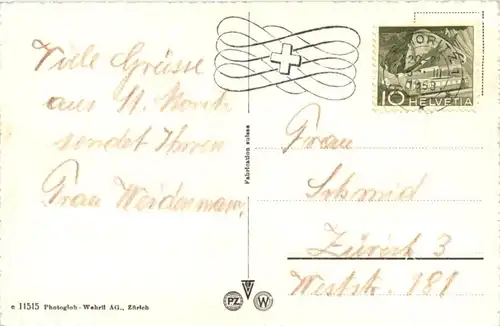 Viele Grüsse
aus St. Moritz
sendet Ihnen
Frau Weidenmann
Fabrication suisse
10 HELVETIA
Frau
Schmid
Zürich 3
Weststr. 181
c 11515 Photoglob-Wehrli AG., Zürich
PZ
W